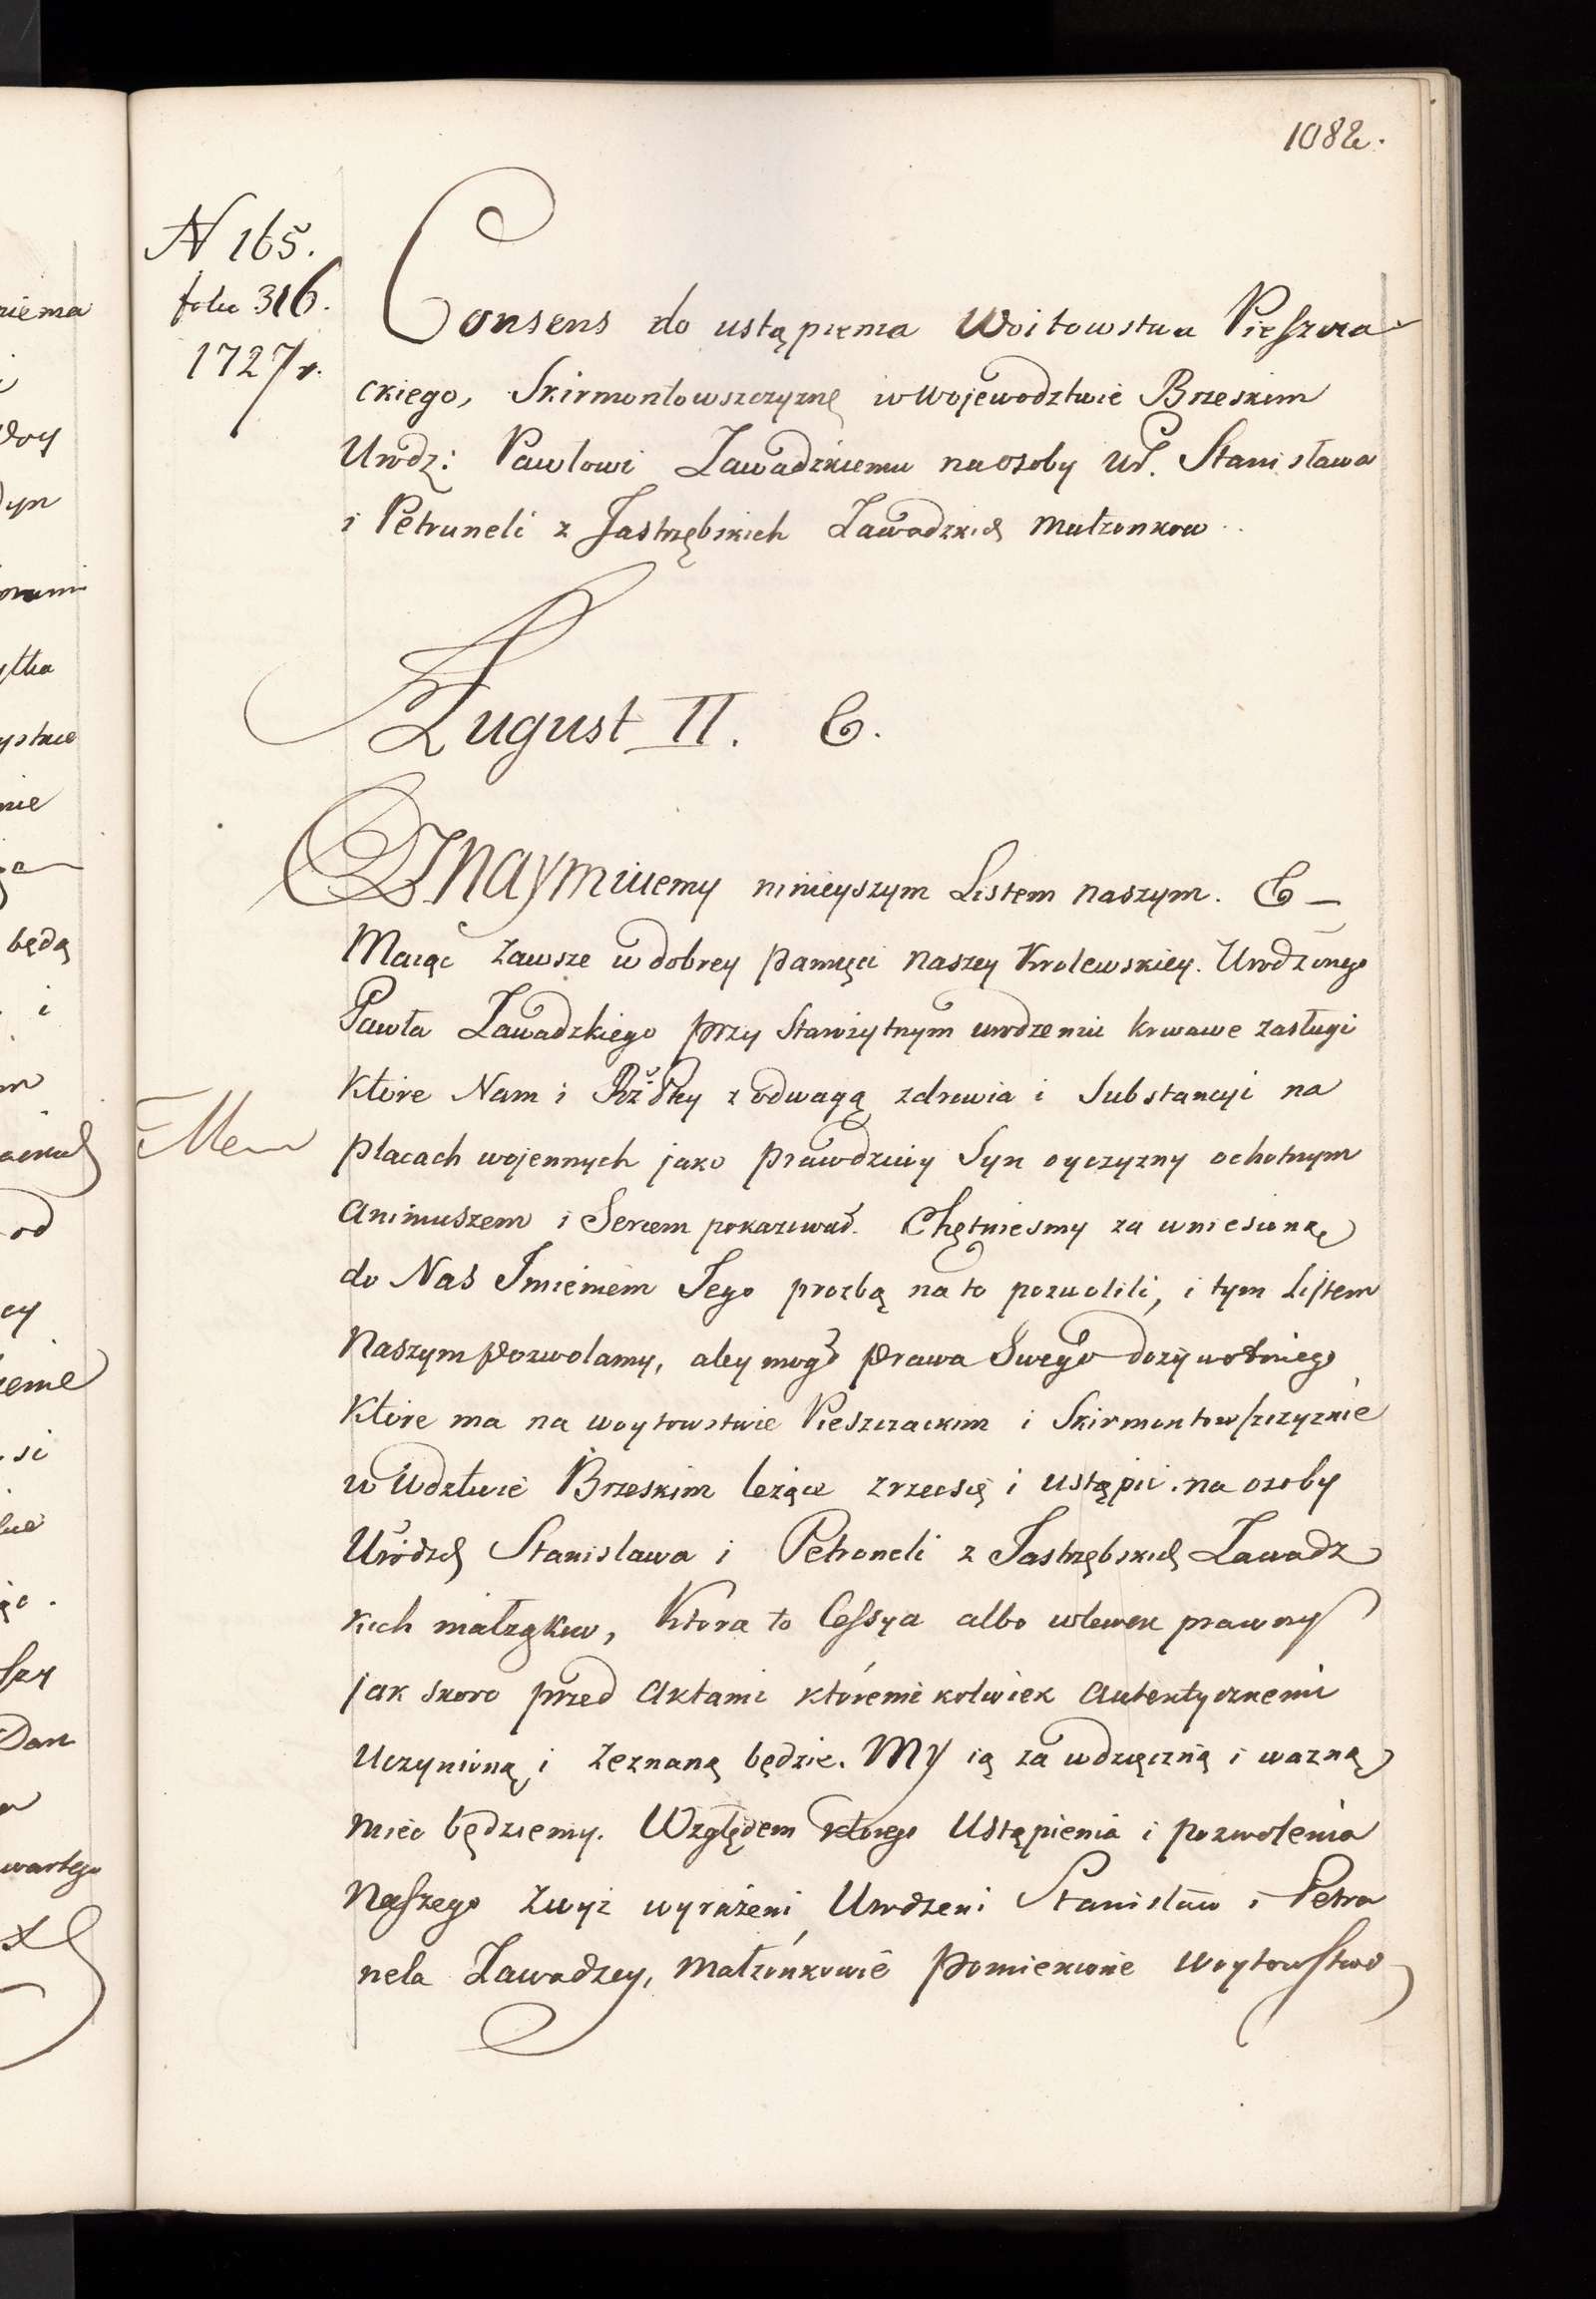 1082.
N 165.
folu 316.
1727 r.
Consens do ustąpienia Woitowstwa Pieszcza
ckiego, Skirmontowszczyznę w Wojewodztwie Brzeskim
Urodz: Pawłowi Zawadzkiemu na osoby Ur. Stanisława
i Petruneli z Jastrzębskich Zawadzkich Małzonkow
August II. &.
Oznaymuiemy ninieyszym Listem naszym. & —
Maiąc zawsze w dobrey pamięci naszey Krolewskiey. Urodzonego
Pawła Zawadzkiego przy Starożytnym urodzeniu krwawe zasługi
Które Nam i Rz-pltey z odwagą zdrowia i Substancyi na
placach wojennych jako prawdziwy Syn oyczyzny ochotnym
animuszem i Sercem pokazował. Chętniesmy za uniesioną
do Nas Imieniem Jego prozbą na to pozwolili, i tym Listem
Naszym pozwolamy, aby mogł prawa Swego dożywotniego
Które ma na woytowstwie Pieszczackim i Skirmontowszczyznie
w Wdztwie Brzeskim leżące zrzecsię i ustąpić na osoby
Urodzch Stanislawa i Petroneli z Jastrzębskich Zawadz
kich małżąkow, Ktora to Cessya albo wlewek prawny
jak skoro przed aktami któremi kolwiek autentycznemi
Uczynioną i zeznaną będzie. My ią za wdzięczną i wazną
mieć będziemy. Względem którego Ustąpienia i pozwolenia
Naszego zwyż wyrażeni Urodzeni Stanisław i Petro
nela Zawadzcy, Małżonkowie pomienione Woytowstwo